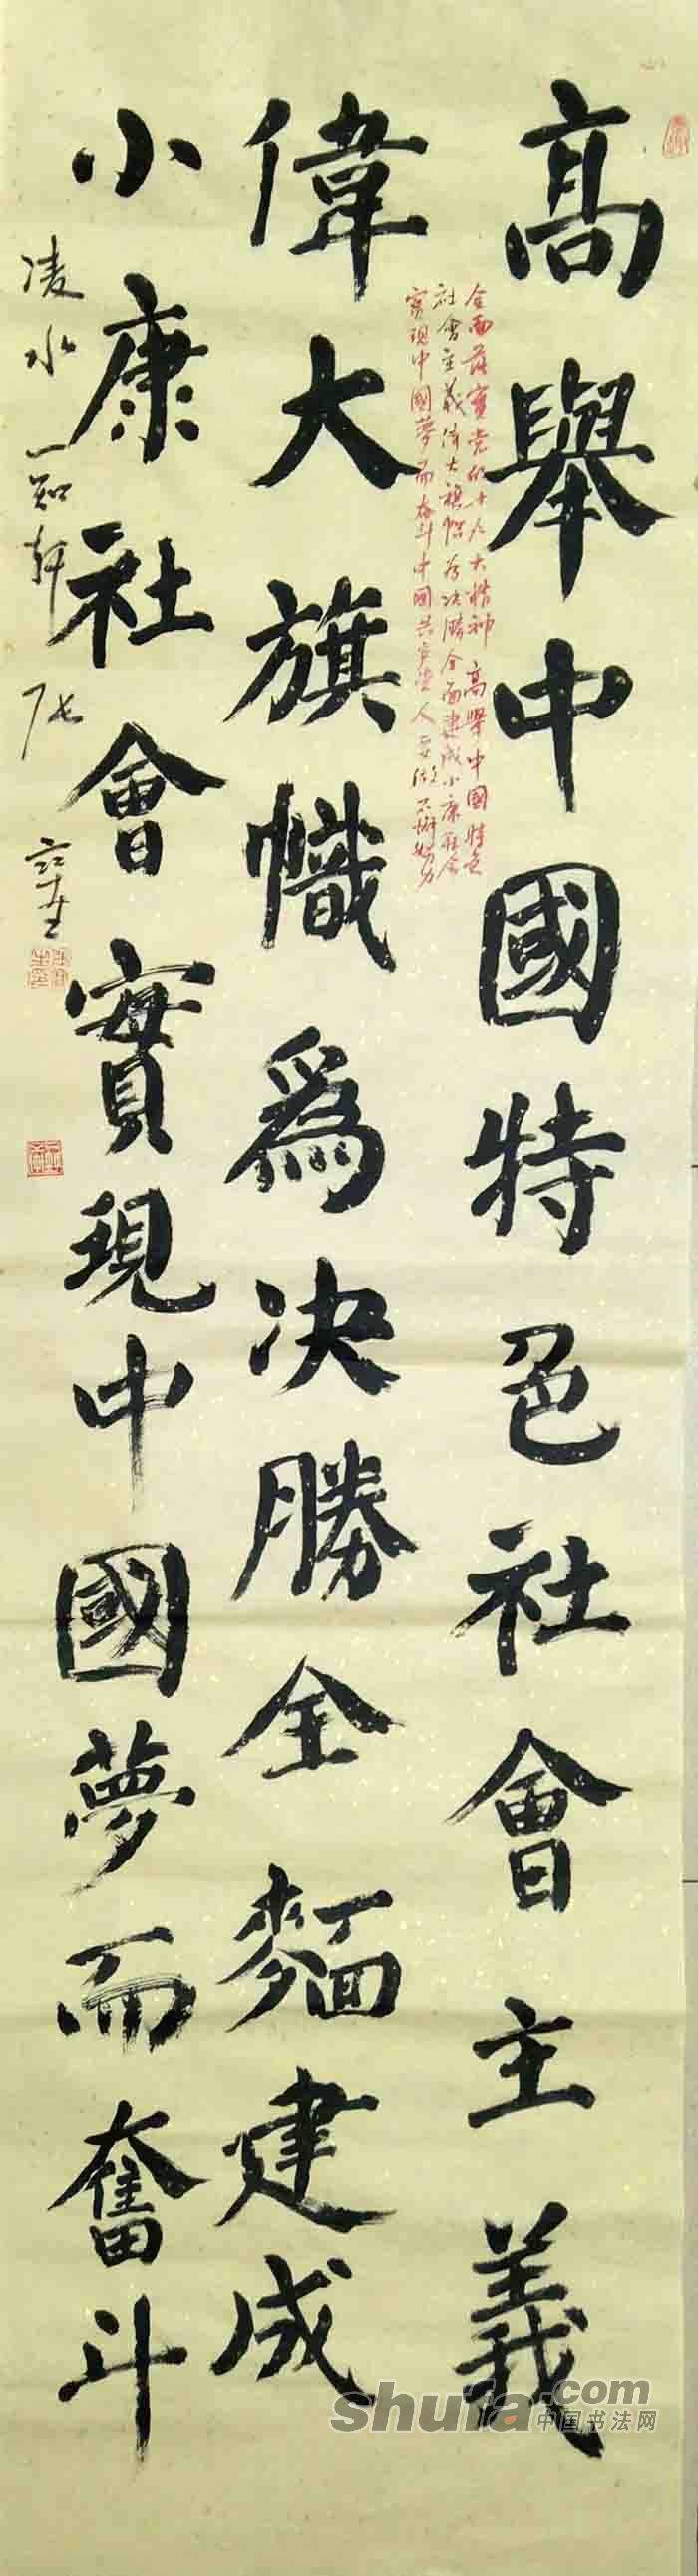 高舉中國特色社會主義
偉大旗幟爲决勝全麵建成
小康社會實現中國夢而奮斗
全面落實党的十九大精神 高舉中國特色
社會主義偉大旗幟为决勝全面建成小康社会
實現中國夢而奋斗中國共产党人要做不懈努力
凌水一知軒
shufa.com
中国书法网